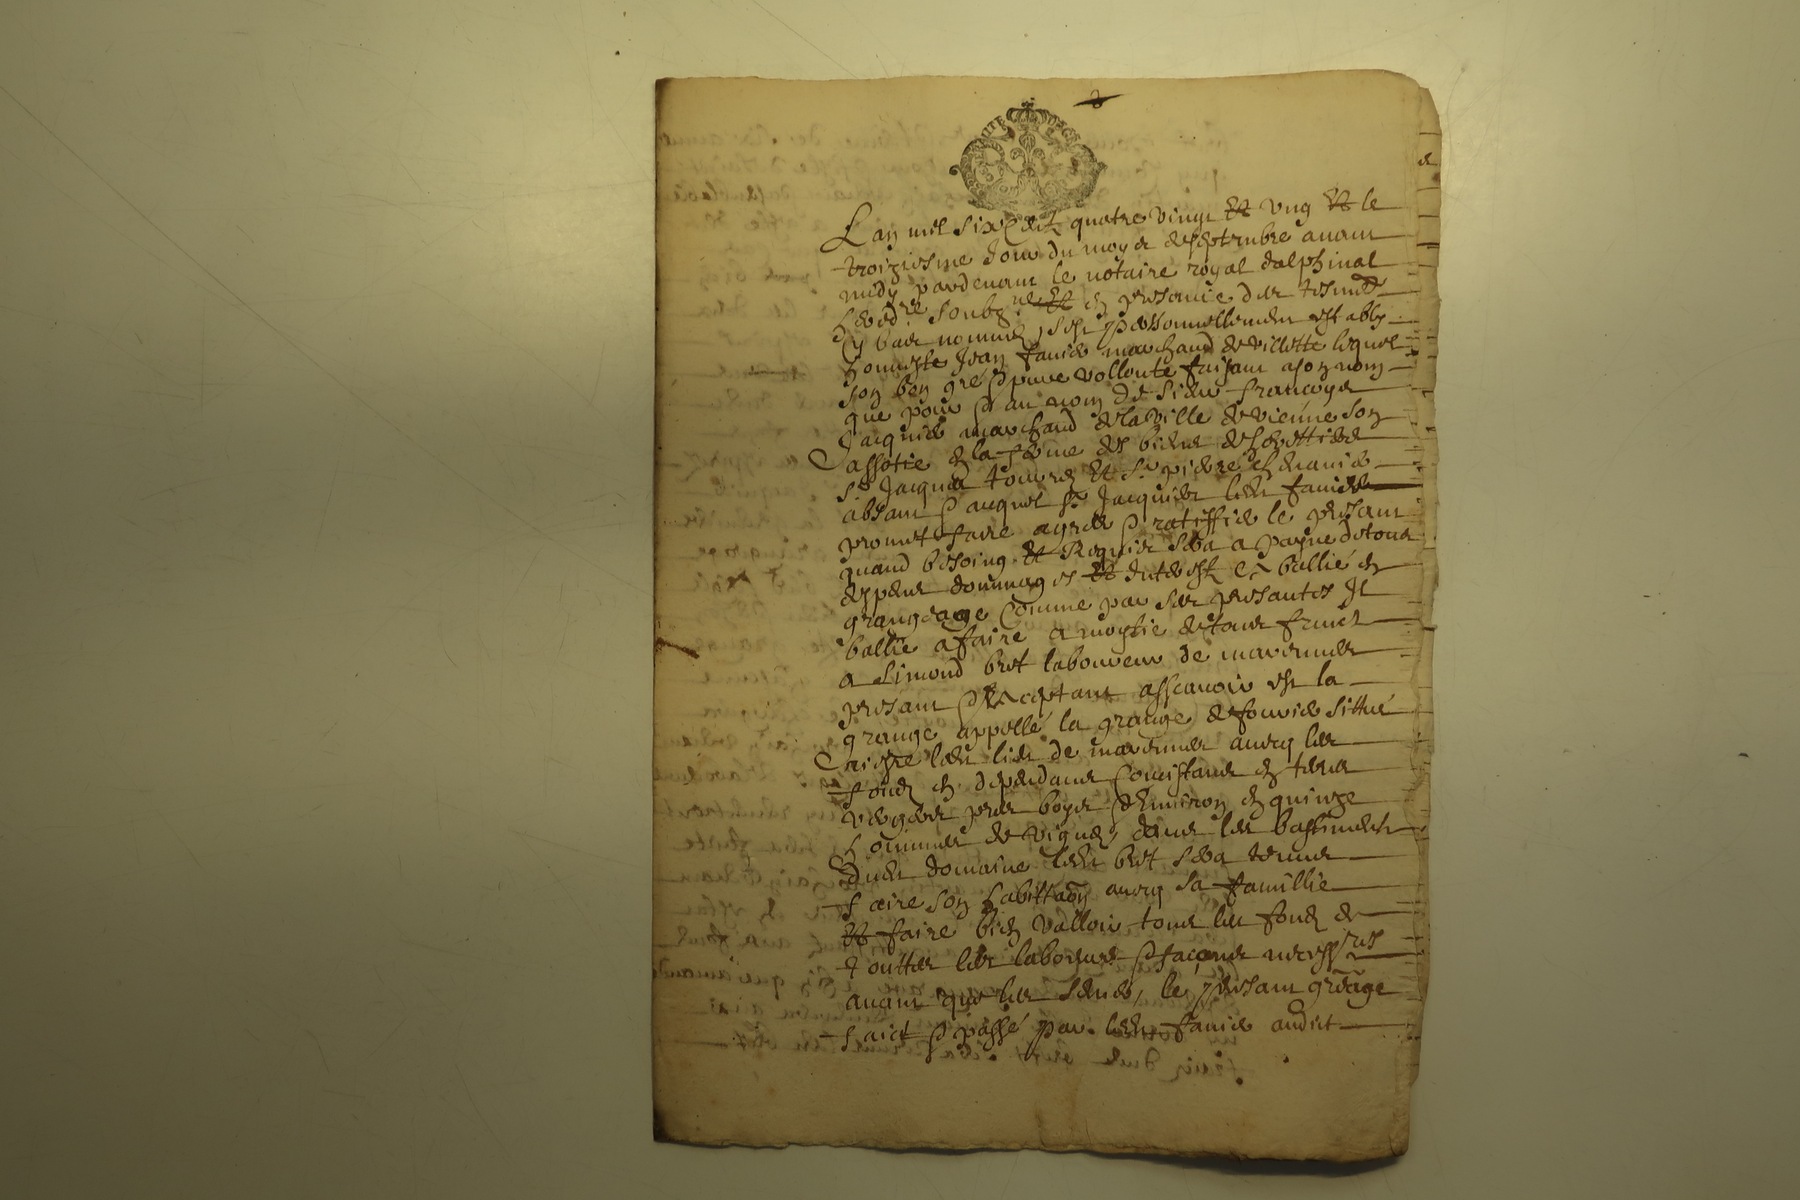 Lan mil six cent quatre vingt et ung et le
troiziesme jour du moys de septembre avant
midy pardevant le notaire royal dalphinal
hered.re soubz.né et en presance des tesmoings
cy bas nommés, sest personnellement estably
honneste Jean Janier marchand de villette lequel
son bon gré et pure vollonté faisant a son nom
que pour et au nom de sieur françoys
Jacquier marchand de la ville de vienne son
assotié en la ferme des biens de
sr Jacques et sr pierre
absant et auquel sr Jacquier ledit Janier
promet faire agreer et ratiffier le presant
quand besoing et requis sera a payne de tous
despens dommages et interest a ballié en
grangeage comme par ses presantes Il
ballie a faire a moytié de tous fruict
a Simond bret laboureur de
presant et acceptant asscavoir est la
grange appellé la grange de sittué
audit lieu de avecq les
fondz en dependant consistant en terres
vergers prés boys et environ en quinze
hommées de vignes, dans les bastiments
dudit domaine ledit bret sera tenu
faire son habittaon avecq sa famillie
et faire bien valloir tous les fondz de
touttes les labourés et façons necess.res
avant que les semer, le presant grangeage
faict et passé par ledit Janier audit